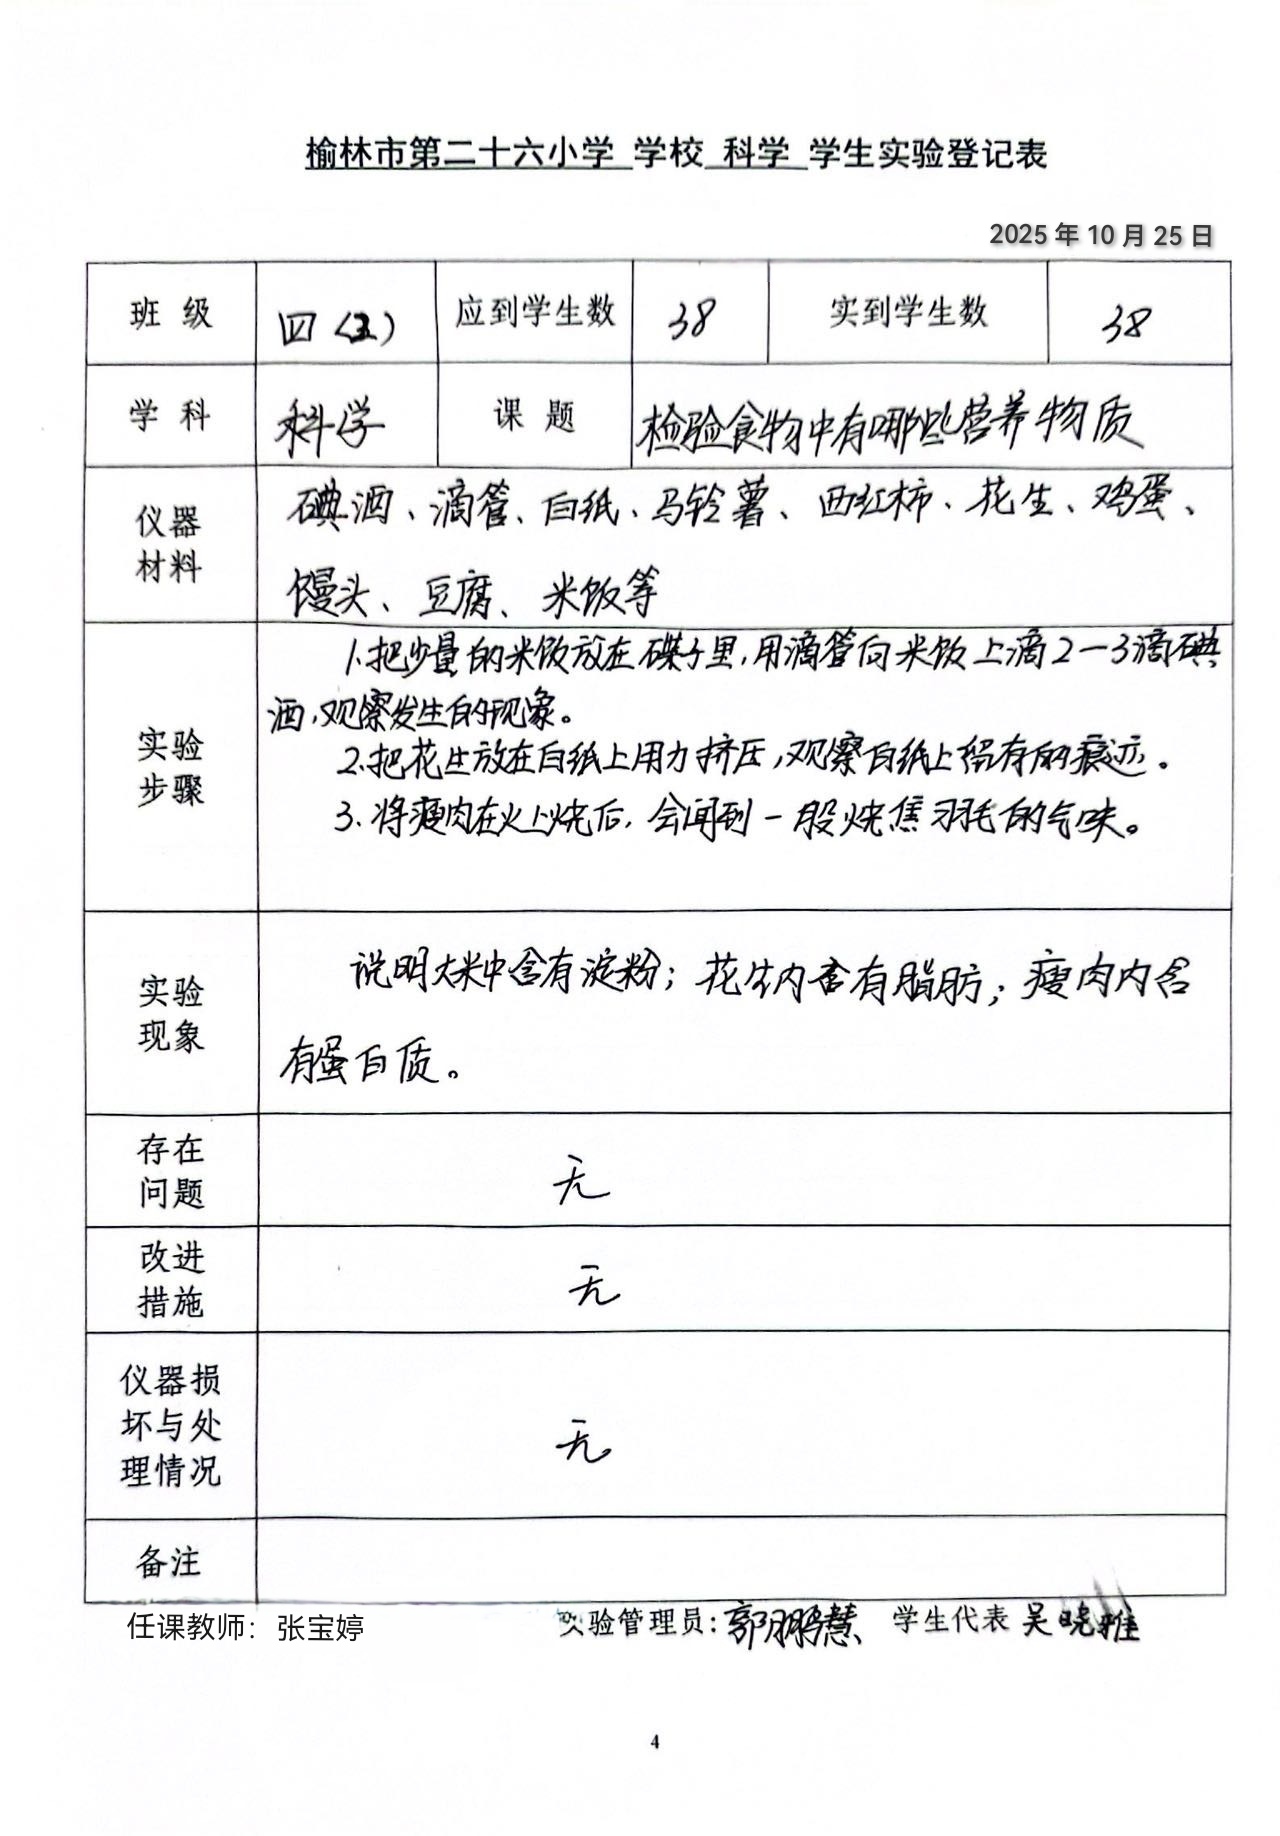 榆林市第二十六小学 学校 科学 学生实验登记表
2025 年 10 月 25 日
班 级 四（2） 应到学生数 38 实到学生数 38
学 科 科学 课 题 检验食物中有哪些营养物质
仪器
材料
碘酒、滴管、白纸、马铃薯、西红柿、花生、鸡蛋、
馒头、豆腐、米饭等
实验
步骤
1.把少量的米饭放在碟子里,用滴管向米饭上滴2—3滴碘
酒,观察发生的现象。
2.把花生放在白纸上用力挤压,观察白纸上留存的痕迹。
3.将瘦肉在火上烧后,会闻到一股烧焦羽毛的气味。
实验
现象
说明大米中含有淀粉；花生内含有脂肪；瘦肉内含
有蛋白质。
存在
问题
无
改进
措施
无
仪器损
坏与处
理情况
无
备注
任课教师：张宝婷 实验管理员：郭鹏慧 学生代表 吴晓雅
4